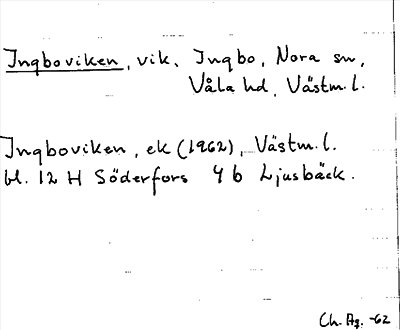 Ingboviken, vik, Ingbo, Nora sn,
Våla hd, Västm.l.
Ingboviken, ek (1962), Västm.l.
bl. 12 H Söderfors 4 b Ljusbäck.
Ch. Ag. -62